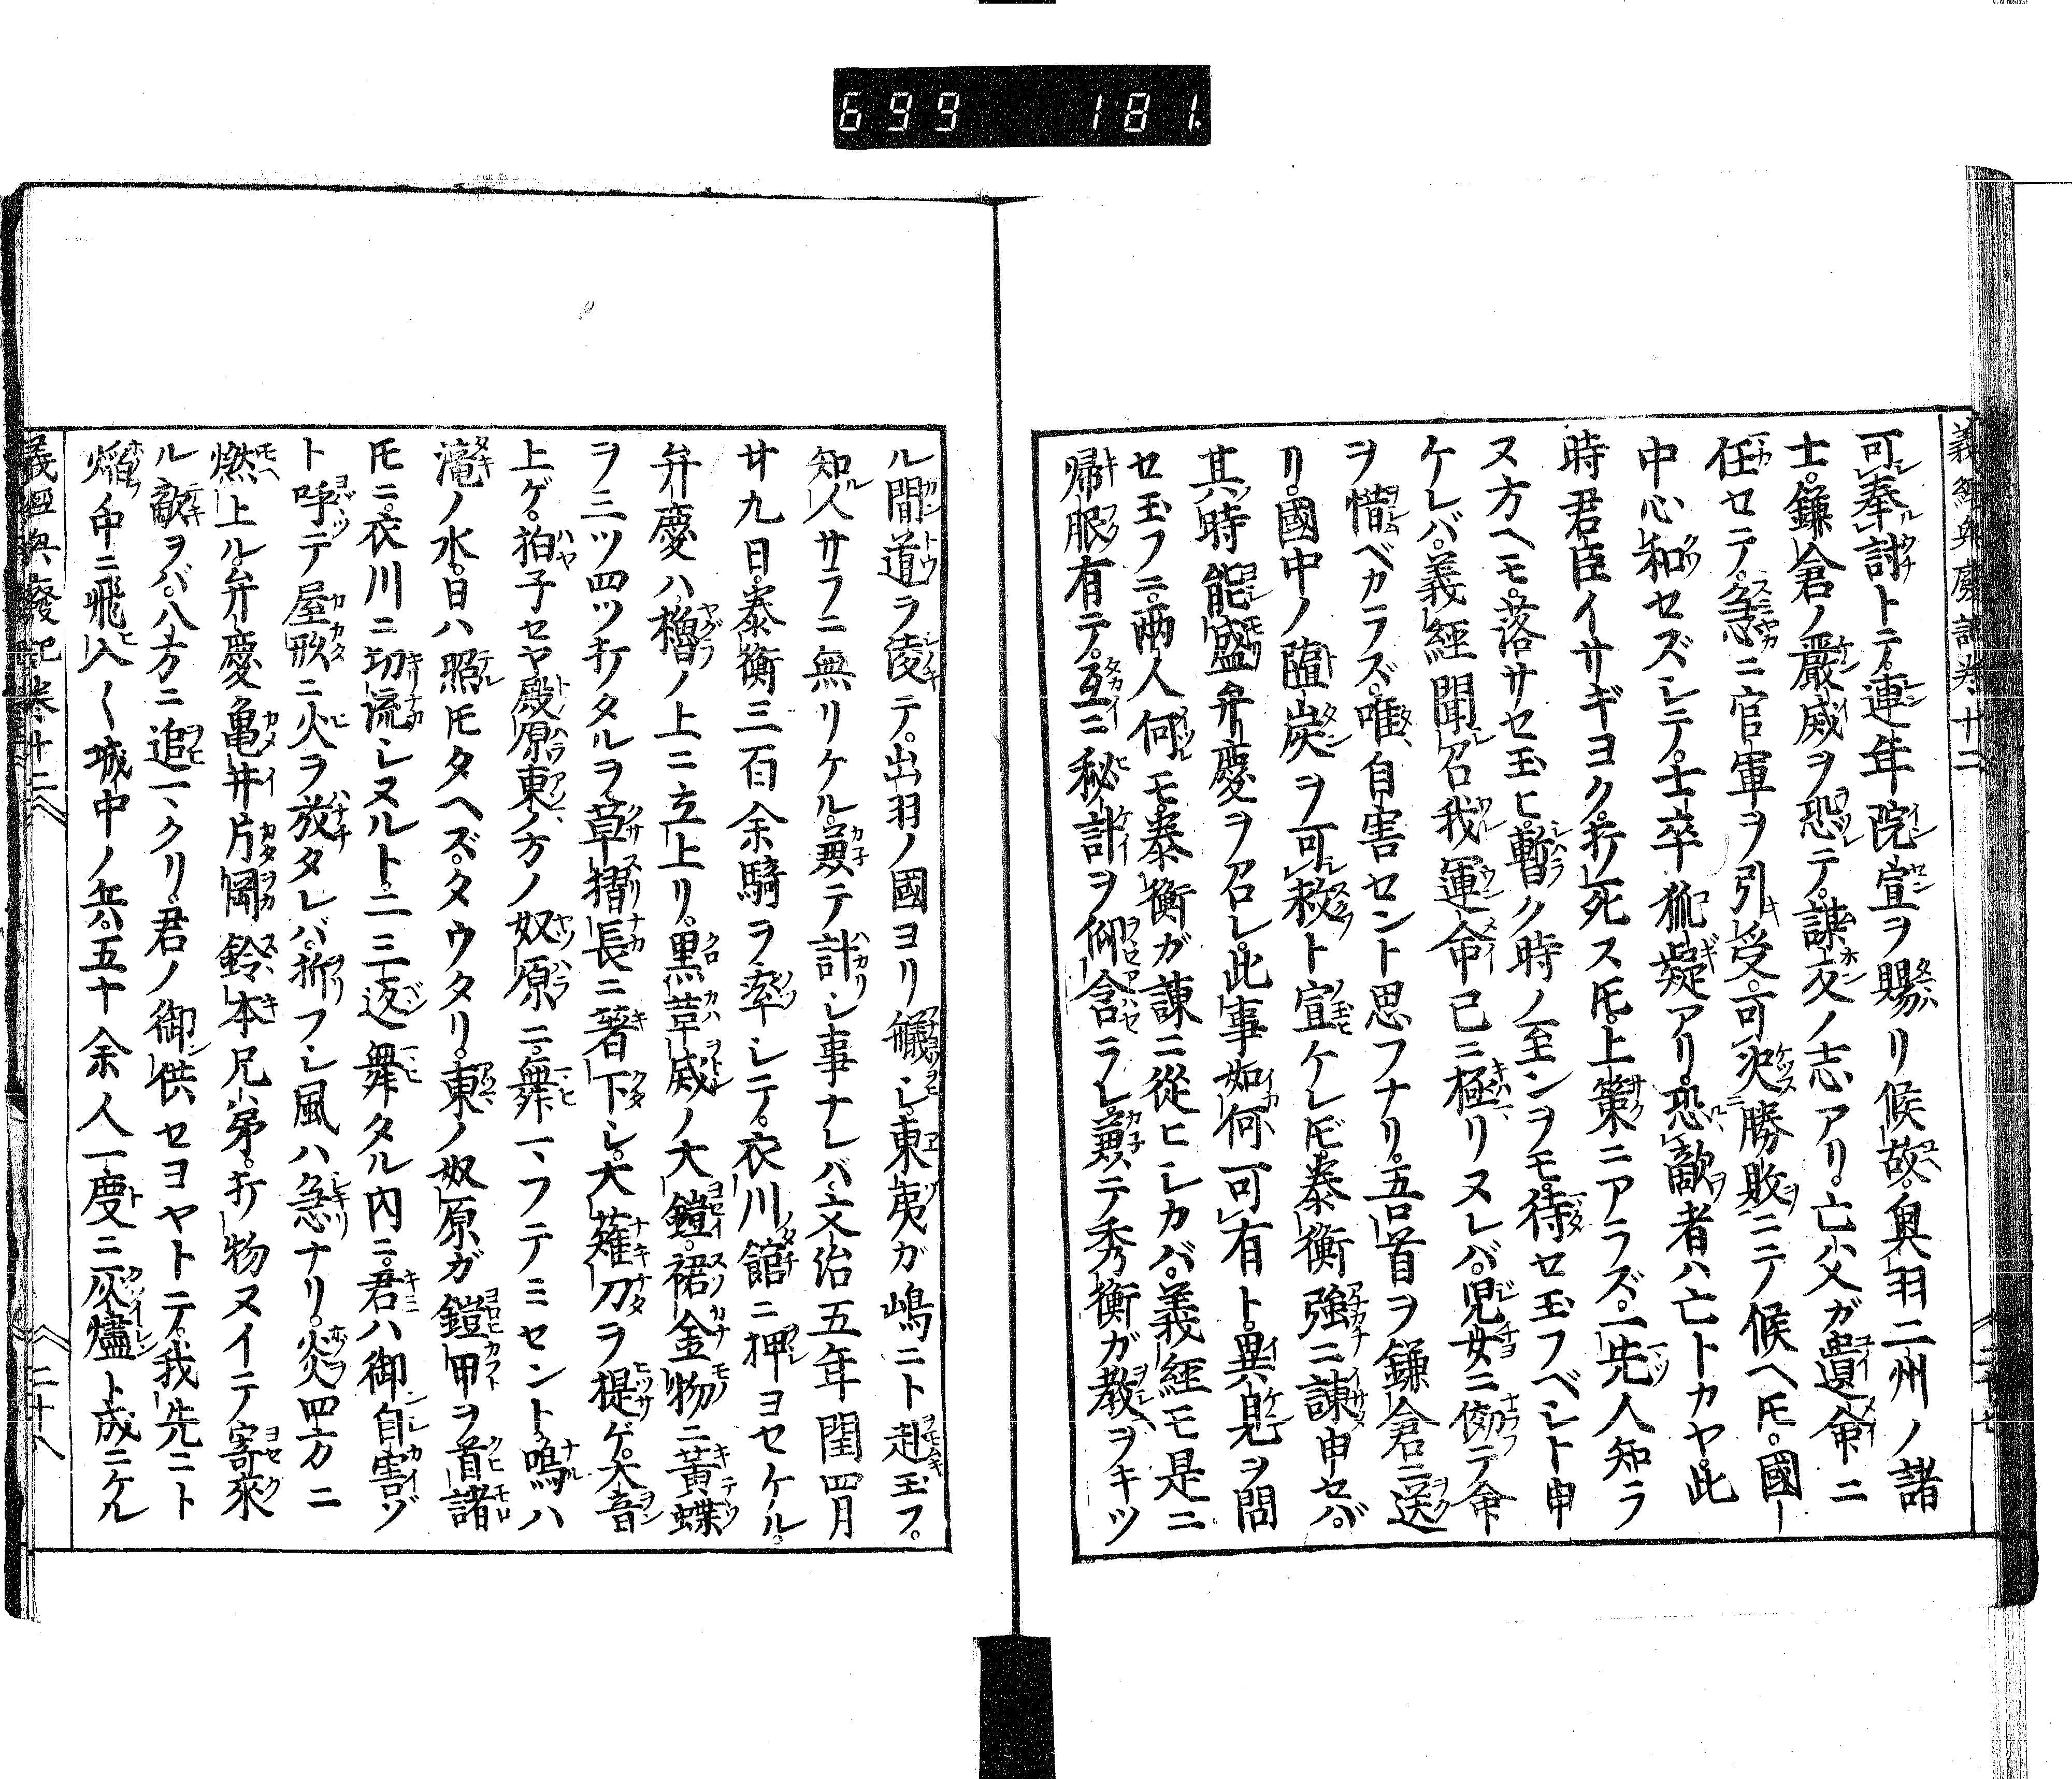 699 181
義經興廢記卷十二
可奉討トテ。連年院宣ヲ賜リ候故。奥羽二州ノ諸
士。鎌倉ノ嚴威ヲ恐テ。謀叛ノ志アリ。亡父ガ遺命ニ
任セテ。急ニ官軍ヲ引受。可決勝敗ニテ候ヘ𪜈。國
中心和セズシテ。士卒狐疑アリ。恐敵者ハ亡トカヤ。此
時君臣イサギヨク。打死ス𪜈。上策ニアラズ。一先人知ラ
ヌ方ヘモ。落サセ玉ヒ。暫ク時ノ至ンヲモ。待セ玉フベシト申
ケレバ。義經聞召我運命已ニ極リヌレバ。児女ニ傚テ命
ヲ惜ベカラズ。唯自害セント思フナリ。吾首ヲ鎌倉ニ送
リ。國中ノ臨炭ヲ可救ト宣ケレ𪜈。泰衡強ニ諫申セバ。
其時能盛弁慶ヲ召レ。此事如何可有ト。異見ヲ問
セ玉フニ。兩人何モ。泰衡ガ諫ニ從ヒシカバ。義經モ是ニ
帰服有テ。互ニ秘計ヲ仰含ラレ。兼テ秀衡ガ教ヲキツ
ル間道ヲ凌テ。出羽ノ國ヨリ艤シ。東夷ガ嶋ニト赴玉フ。
知人サラニ無リケル。兼テ計シ事ナレバ。文治五年閏四月
廿九日。泰衡三百余騎ヲ率シテ。衣川館ニ押ヨセケル。
弁慶ハ櫓ノ上ニ立上リ。黒革威ノ大鎧。裾金物ニ黄蝶
ヲ三ツ四ツ打タルヲ。草摺長ニ著下シ。大薙刀ヲ提ゲ。大音
上ゲ。拍子セヤ殿原東ノ方ノ奴原ニ。舞一フテミセント。鳴ハ
瀧ノ水。日ハ照𪜈タヘズ。タウタリ。東ノ奴原ガ鎧甲ヲ首諸
𪜈ニ。衣川ニ切流シヌルト。二三返舞タル内ニ。君ハ御自害ゾ
ト呼テ屋形ニ火ヲ放タレバ。折フシ風ハ急ナリ。炎四方ニ
燃上ル。弁慶亀井片岡鈴木兄弟。打物ヌイテ寄來
ル敵ヲバ。八方ニ追マクリ。君ノ御供セヨヤトテ。我先ニト
焔ノ中ニ飛入〱城中ノ兵。五十余人一度ニ灰燼ト成ニケル
義經興廢記卷十二
二十八